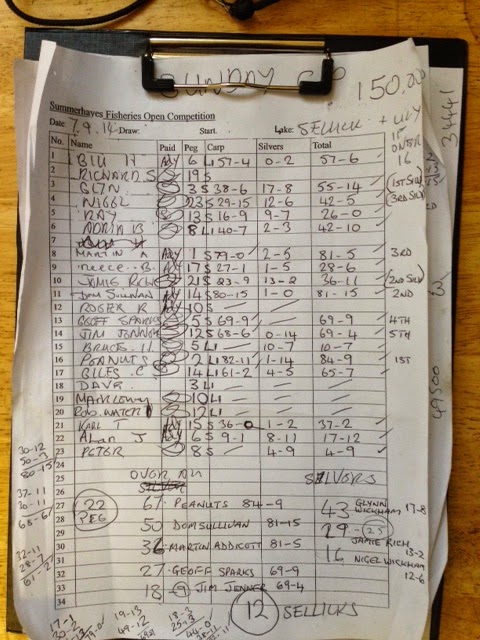 SUNDAY
150.00
Summerhayes Fisheries Open Competition
Date: 7.9.14 Draw: Start. Lake: SELLICK + LILY
No. Name Paid Peg Carp Silvers Total
1 BILL H 6 LI 57-4 0-2 57-6
2 RICHARD S 19 S
3 GLYN 3 S 38-6 17-8 55-14 (1st SILV)
4 NIGEL 23 S 29-15 12-6 42-5 (3rd SILV)
5 RAY 13 S 16-9 9-7 26-0
6 ADRIA B 8 LI 40-7 2-3 42-10
7
8 MARTIN A 1 S 79-0 2-5 81-5 3RD
9 REECE..B. 17 S 27-1 1-5 28-6
10 JAMIE RICH 21 S 23-9 13-2 36-11 (2nd SILV)
11 DOM SULLIVAN 14 S 80-15 1-0 81-15 2ND
12 ROGER R 10 S
13 GEOFF SPARKS 5 S 69-9 69-9 4TH
14 JIM JENNER 12 S 68-6 0-14 69-4 5TH
15 BRUCE. H. 5 LI 10-7 10-7
16 PEANUTS. 2 LI 82-11 1-14 84-9 1ST
17 GILES. C 14 LI 61-2 4-5 65-7
18 DAVE. 3 LI
19 MARK LEWY 10 LI
20 ROB. WATER 12 LI
21 KARL T 15 S 36-0 1-2 37-2
22 ALAN J 6 S 9-1 8-11 17-12
23 PETER 8 S 4-9 4-9
24
25 OVER ALL SILVERS
26
27 22 PEG 67 - PEANUTS 84-9 43 GLYNN WICKHAM 17-8
28
29 50 DOM SULLIVAN 81-15 29 - 25 JAMIE RICH 13-2
30
31 36 - MARTIN ADDICOTT 81-5 16 NIGEL WICKHAM 12-6
32 27 - GEOFF SPARKS 69-9
33 18 - 9 JIM JENNER 69-4
34 12 SELLICKS
30-12
50-3
80-15
37-11
30-11
68-6
32-11
28-7
61-2
34441
49500